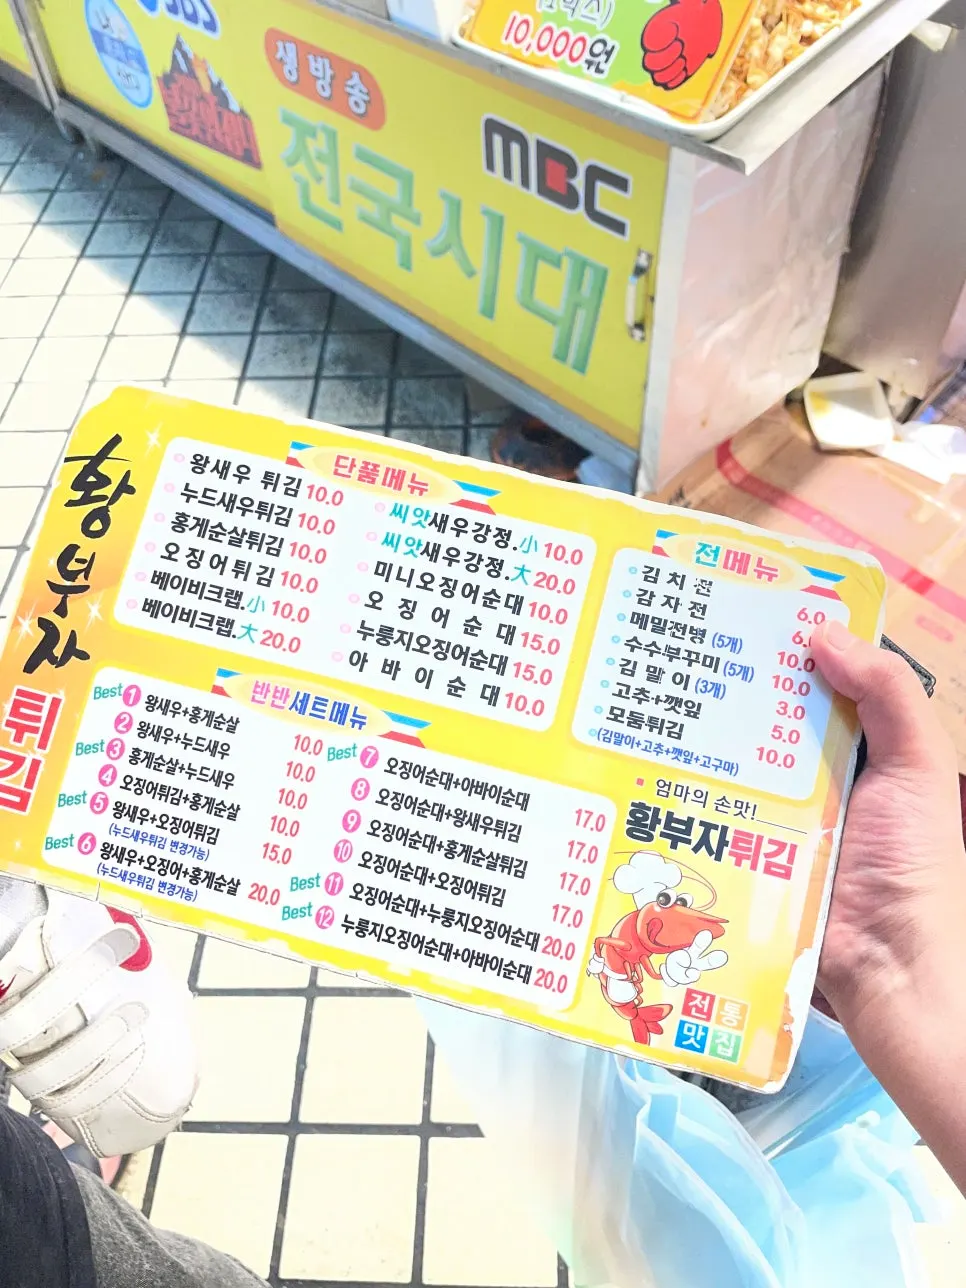 SBS
생방송
전국시대
MBC
10,000원
황부자
튀김
단품메뉴
왕새우 튀김 10.0
누드새우튀김 10.0
홍게순살튀김 10.0
오징어튀김 10.0
베이비크랩.小 10.0
베이비크랩.大 20.0
씨앗새우강정.小 10.0
씨앗새우강정.大 20.0
미니오징어순대 10.0
오징어순대 15.0
누룽지오징어순대 15.0
아바이순대 10.0
전메뉴
김치전 6.0
감자전 6.0
메밀전병 (5개) 10.0
수수부꾸미 (5개) 10.0
김말이 (3개) 3.0
고추+깻잎 5.0
모둠튀김 10.0
(김말이+고추+깻잎+고구마)
반반세트메뉴
Best 1 왕새우+홍게순살 10.0
2 왕새우+누드새우 10.0
Best 3 홍게순살+누드새우 10.0
4 오징어튀김+홍게순살 10.0
Best 5 왕새우+오징어튀김 15.0
(누드새우튀김 변경가능)
Best 6 왕새우+오징어+홍게순살 20.0
(누드새우튀김 변경가능)
Best 7 오징어순대+아바이순대 17.0
8 오징어순대+왕새우튀김 17.0
9 오징어순대+홍게순살튀김 17.0
10 오징어순대+오징어튀김 17.0
Best 11 오징어순대+누룽지오징어순대 20.0
Best 12 누룽지오징어순대+아바이순대 20.0
엄마의 손맛!
황부자튀김
전통
맛집